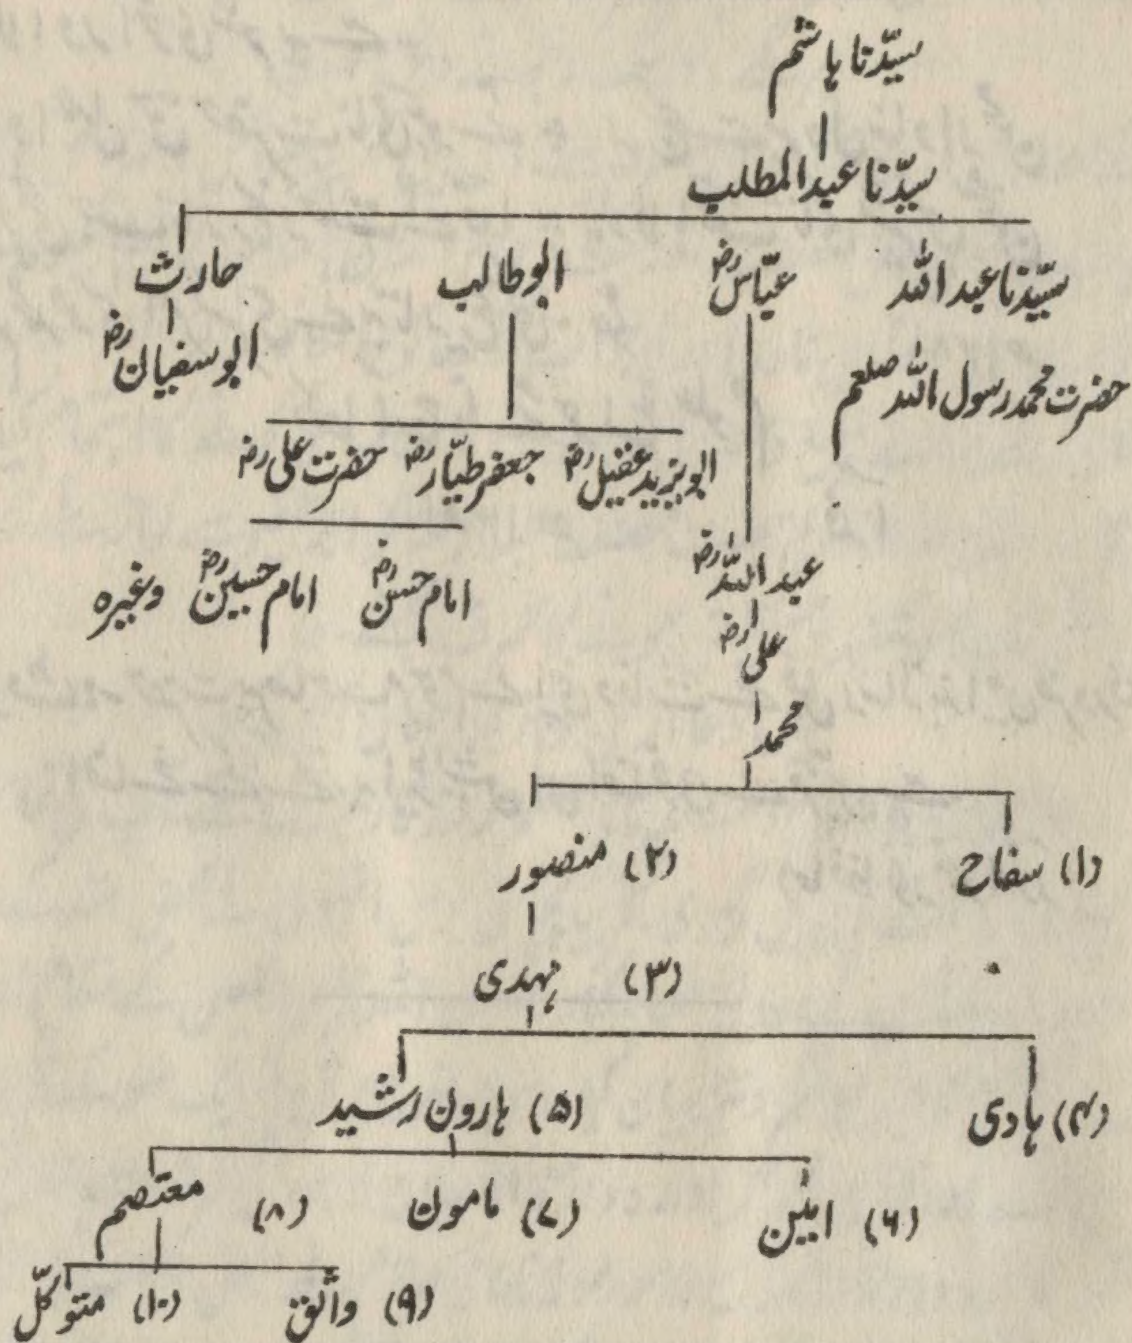 سیّدنا ہاشم
سیّدنا عبدالمطلب
سیّدنا عبد اللہ عبّاس رضؓ ابوطالب حارث
حضرت محمد رسول اللہ صلعم ابوسفیان رضؓ
ابویزید عقیل رضؓ جعفر طیّار رضؓ حضرت علی رضؓ
عبد اللہ رضؓ امام حسن رضؓ امام حسین رضؓ وغیرہ
علی رضؓ
محمد
(۱) سفاح (۲) منصور
(۳) مہدی
(۴) ہادی (۵) ہارون رشید
(۶) امین (۷) مامون (۸) معتصم
(۹) واثق (۱۰) متوکّل